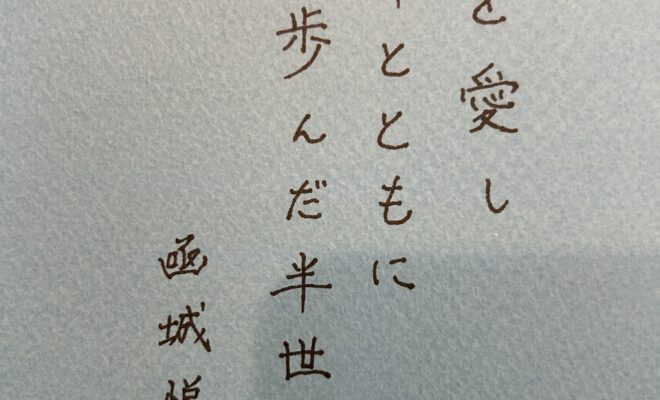 を愛し
とともに
歩んだ半世
函城